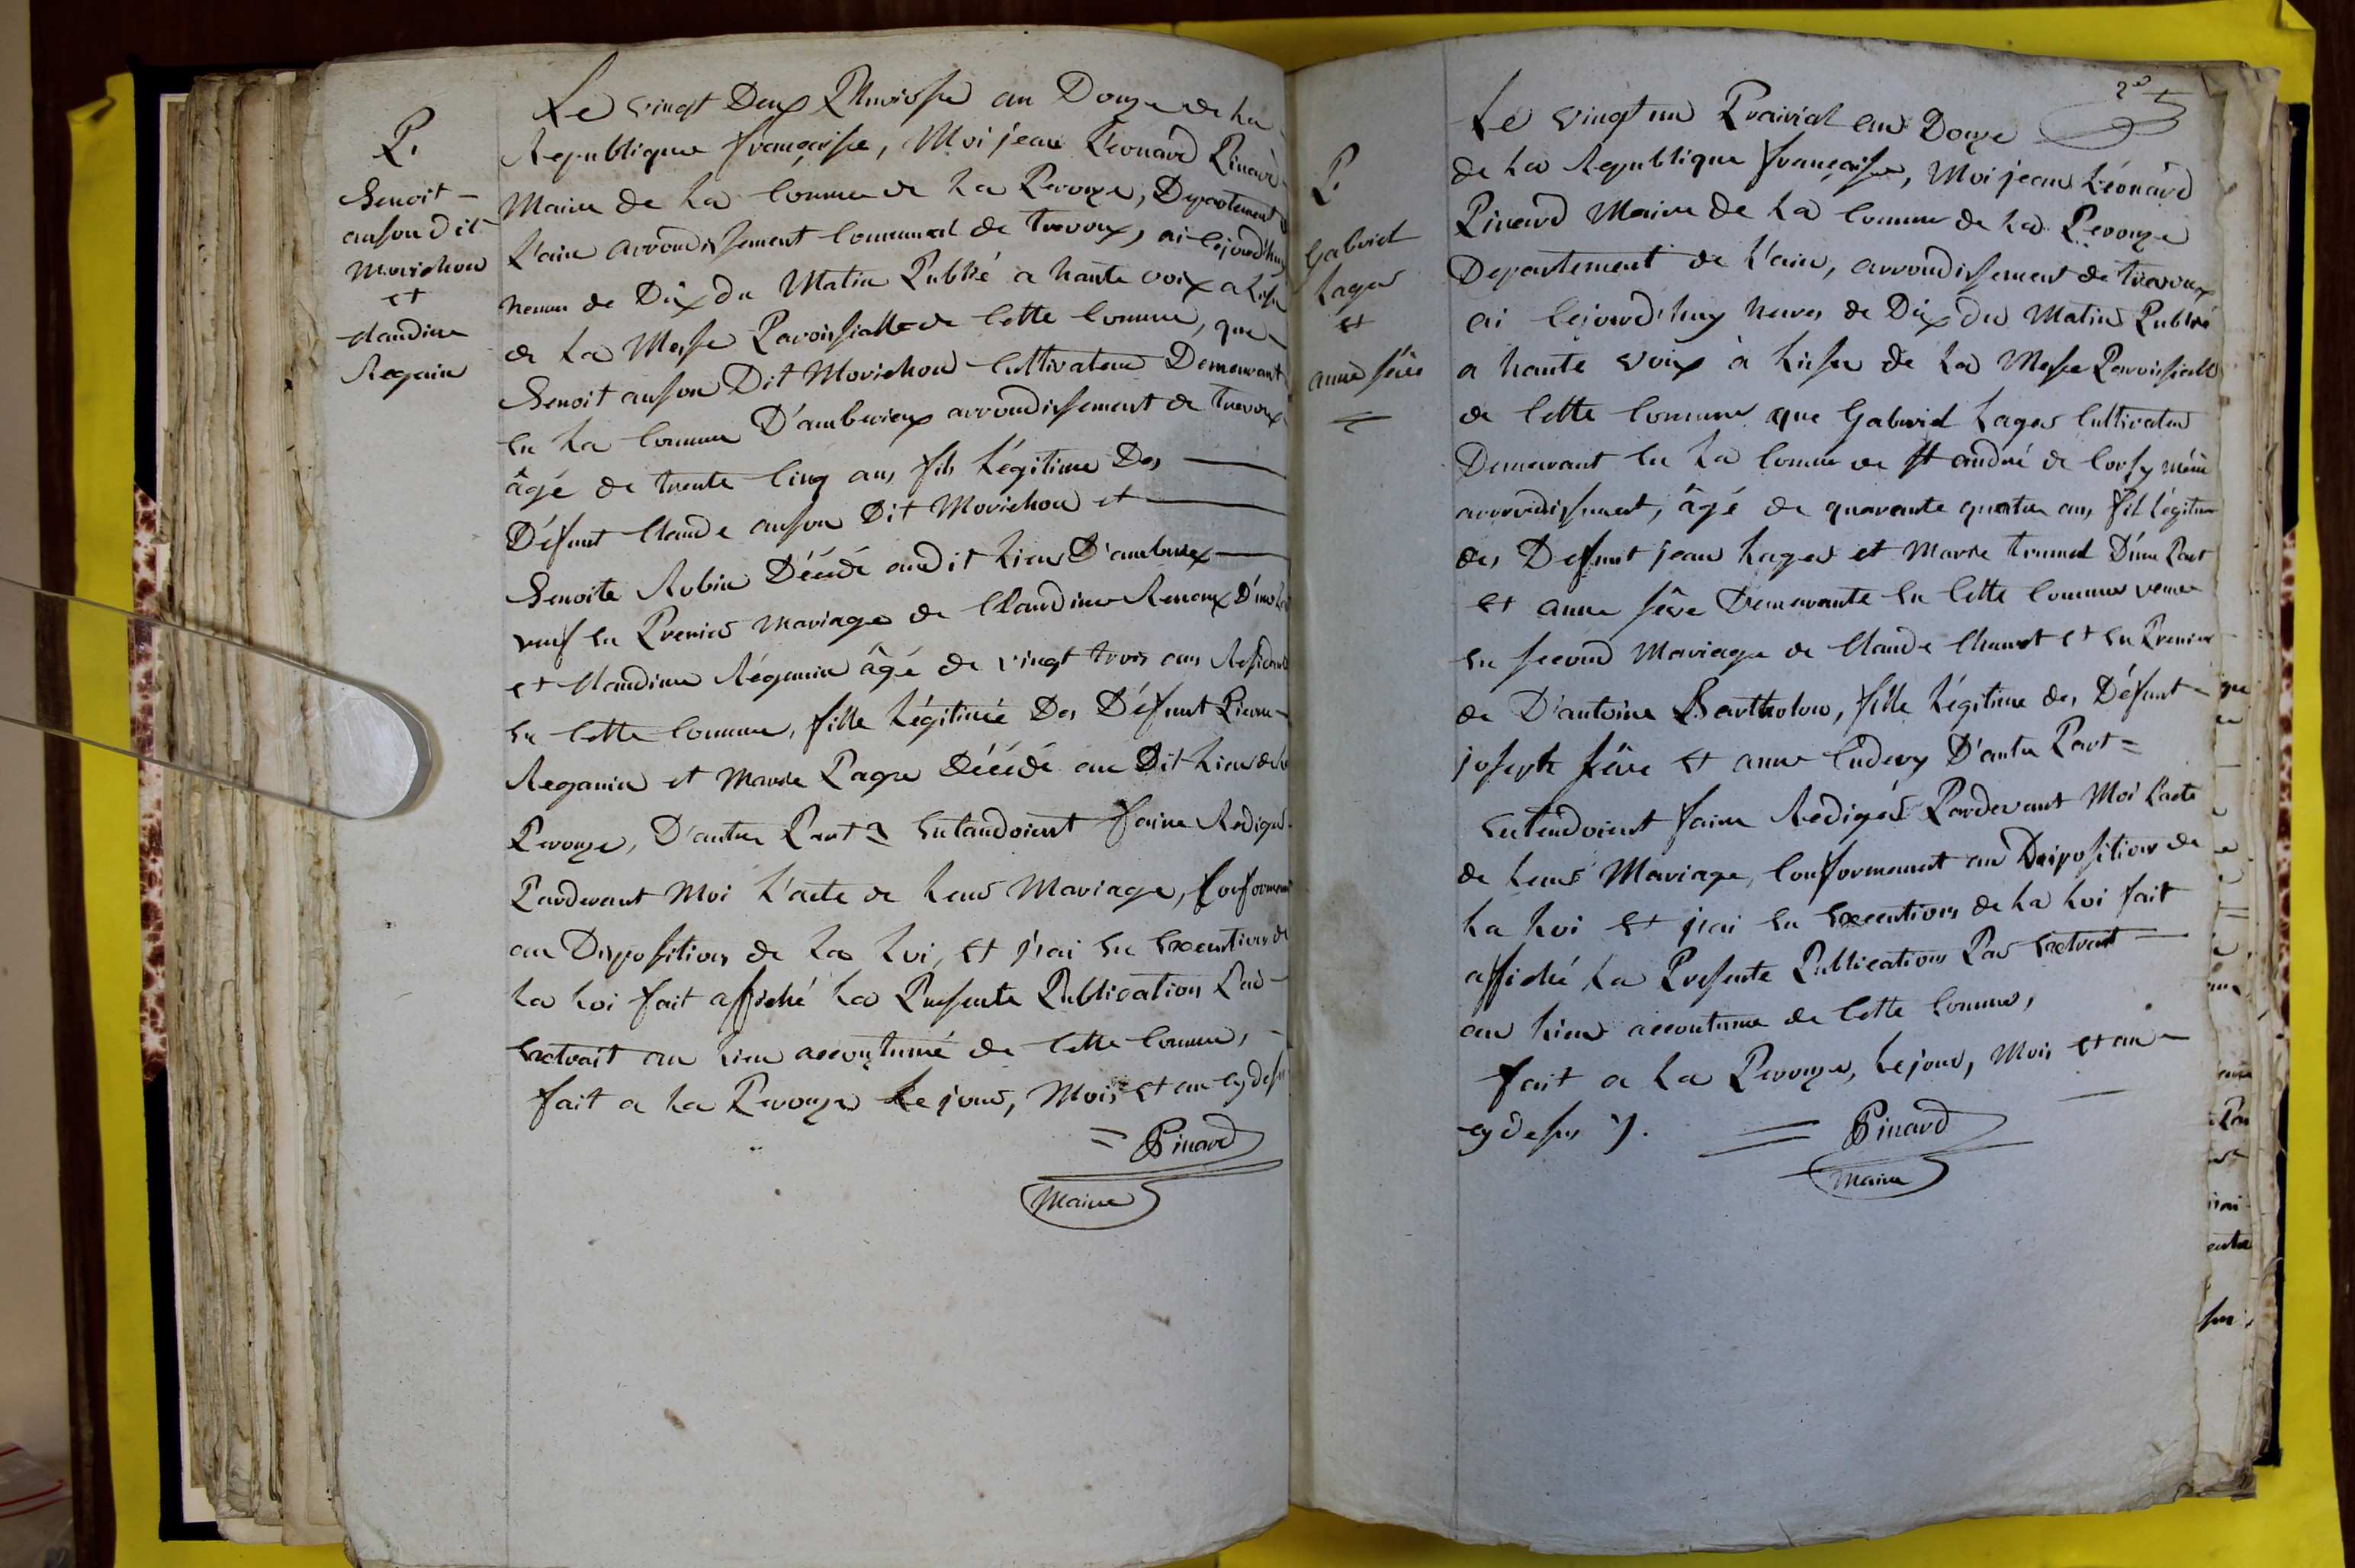 P.
Benoit
anson dit
Morichon
et
claudine
Reganin
Le vingt Deux Pluviosse an Douze de La
Republique françaisse, Moi jean Léonard Pinard
Maire de La Comune de La Perouze, Departement
L'ain arrondissement Communal de Trevoux, ai cejourd'huy
heures de Dix du Matin Publié a haute voix a Lissu
de La Messe Paroissialle de Cette Comune, que
Benoit anson Dit Morichon Cultivateur Demeurant
En La Comune D'amberieux arrondissement de Trevoux
âgé de trente Cinq ans, fils Légitime Des
Défunt Claude anson Dit Morichon et
Benoite Robin Décédé audit Lieu D'amberieux
veuf En Premier Mariage de Claudine Renoux D'une Part
et Claudine Réganin âgé de vingt trois ans Residante
En Cette Comune, fille Légitime Des Défunt Pierre
Reganin et Marie Page Décédé au Dit Lieu de La
Perouze, D'autre Part Entandoient faire Rediger
Pardevant Moi L'acte de Leur Mariage, Conformement
au Disposition de La Loi, Et j'ai En Execution de
La Loi fait affiché La Presente Publication Par
Extrait au Lieu accoutumé de Cette Comune,
fait a La Perouze Le jour, Mois Et an cy dessu
Pinard
Maire
P.
Gabriel
Lager
Et
anne sève
Le vingt un Prairial an Douze
de La Republique françaisse, Moi jean Léonard
Pinard Maire de La Comune de La Perouze
Departement de L'ain, arrondissement de Trevoux
ai Cejourd'huy heures de Dix du Matin Publié
a haute voix à Lissu de La Messe Paroissialle
de Cette Comune que Gabriel Lager Cultivateur
Demeurant En La Comune de St andré de Corsy même
arrondissement, âgé de quarante quatre ans, fil Légitime
des Défunt jean Lager et Marie D'une Part
Et anne sève Demeurante En Cette Comune veuve
En second Mariage de Claude Et En Premier
de D'antoine Bartholon, fille Légitime des Défunt
joseph sève Et anne D'autre Part =
Entendoient faire Rediger Pardevant Moi L'acte
de Leur Mariage, Conformement au Disposition de
La Loi Et j'ai En Execution de La Loi fait
affiché La Presente Publication Par Extrait
au Lieu accoutumé de Cette Comune,
fait a La Perouze, Le jour, Mois Et an
cy dessus.
Pinard
Maire